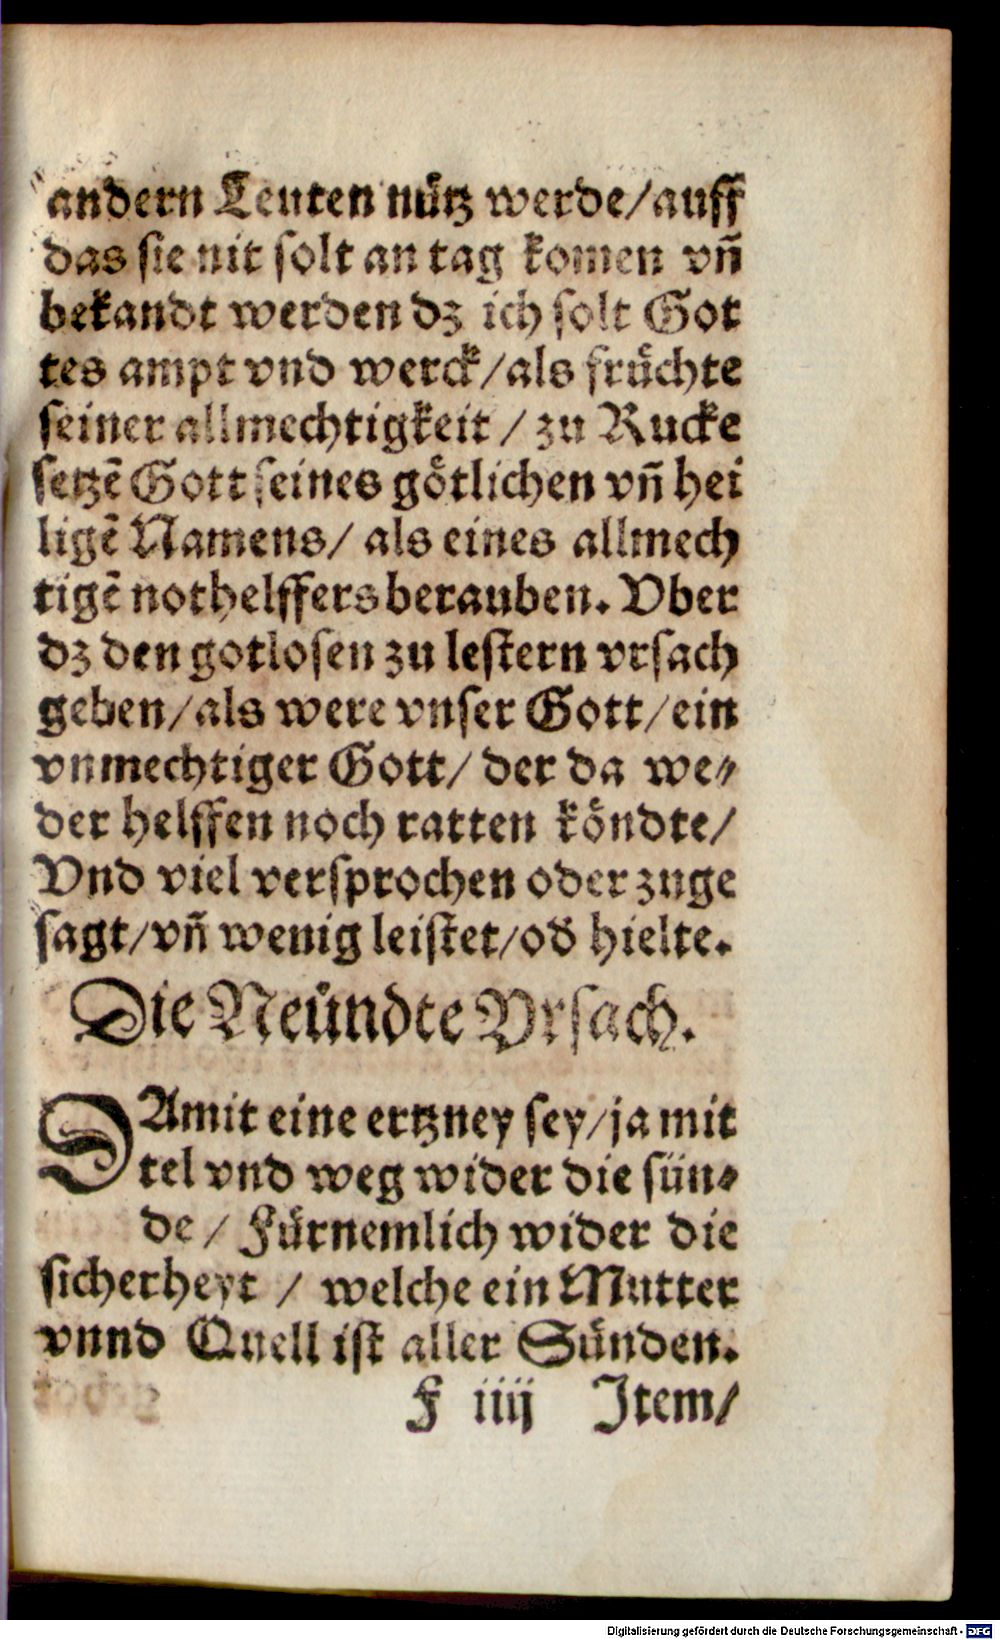 andern Leuten nütz werde/auff
das sie nit solt an tag komen vñ
bekandt werden dz ich solt Got
tes ampt vnd werck/als früchte
seiner allmechtigkeit / zu Rucke
setzẽ Gott seines götlichen vñ hei
ligẽ Namens/ als eines allmech
tigẽ nothelffers berauben. Vber
dz den gotlosen zu lestern vrsach
geben/als were vnser Gott/ein
vnmechtiger Gott/ der da we⸗
der helffen noch ratten köndte/
Vnd viel versprochen oder zuge
sagt/vñ wenig leistet/od hielte.
Die Neündte Vrsach.
DAmit eine ertzney sey/ja mit
tel vnd weg wider die sün⸗
de / Fürnemlich wider die
sicherheyt / welche ein Mutter
vnnd Quell ist aller Sünden.
F iiij Item/
Digitalisierung gefördert durch die Deutsche Forschungsgemeinschaft - DFG